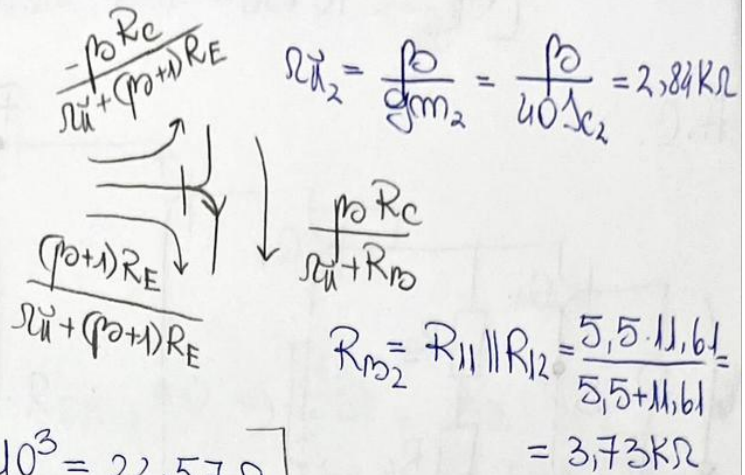 -βRc / rπ+(β+1)RE
rπ₂ = β / gm₂ = β / 40Ic₂ = 2,84KΩ
βRc / rπ+RB
(β+1)RE / rπ+(β+1)RE
RB₂ = R11 || R12 = 5,5·11,61 / 5,5+11,61 =
= 3,73KΩ
10³ =